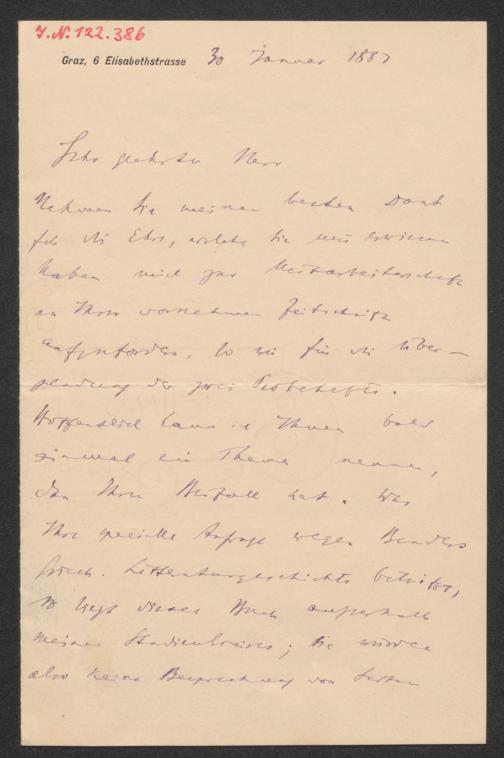 J.N. 122.386
Graz, 6 Elisabethstrasse 30 Januar 1887
Sehr geehrter Herr
Nehmen Sie meinen besten Dank
für die Ehre, welche Sie mir erwiesen
haben mich zur Mitarbeiterschaft
an Ihrer vornehmen Zeitschrift
aufzufordern, so wie für die Über-
sendung der zwei Probehefte.
Hoffentlich kann ich Ihnen bald
einmal ein Thema nennen,
das Ihren Beifall hat. Was
Ihre specielle Anfrage wegen Benders
griech. Litteraturgeschichte betrifft,
so liegt dieses Buch ausserhalb
meines Studienkreises; Sie würden
also keine Besprechung von Seiten